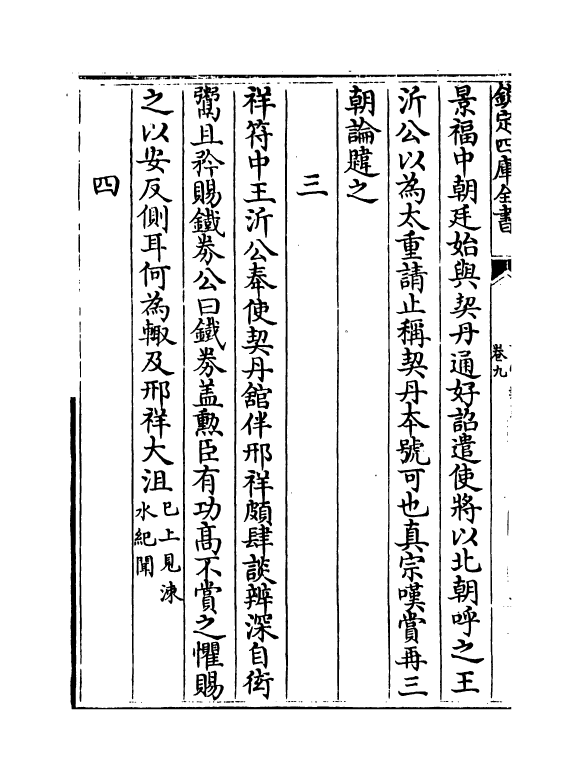 欽定四庫全書
卷九
景福中朝廷始與契丹通好詔遣使將以北朝呼之王
沂公以為太重請止稱契丹本號可也真宗嘆賞再三
朝論韙之
三
祥符中王沂公奉使契丹舘伴邢祥頗肆談辨深自衒
鬻且矜賜鐵券公曰鐵券盖勲臣有功髙不賞之懼賜
之以安反側耳何為輙及邢祥大沮已上見涑
水紀聞
四